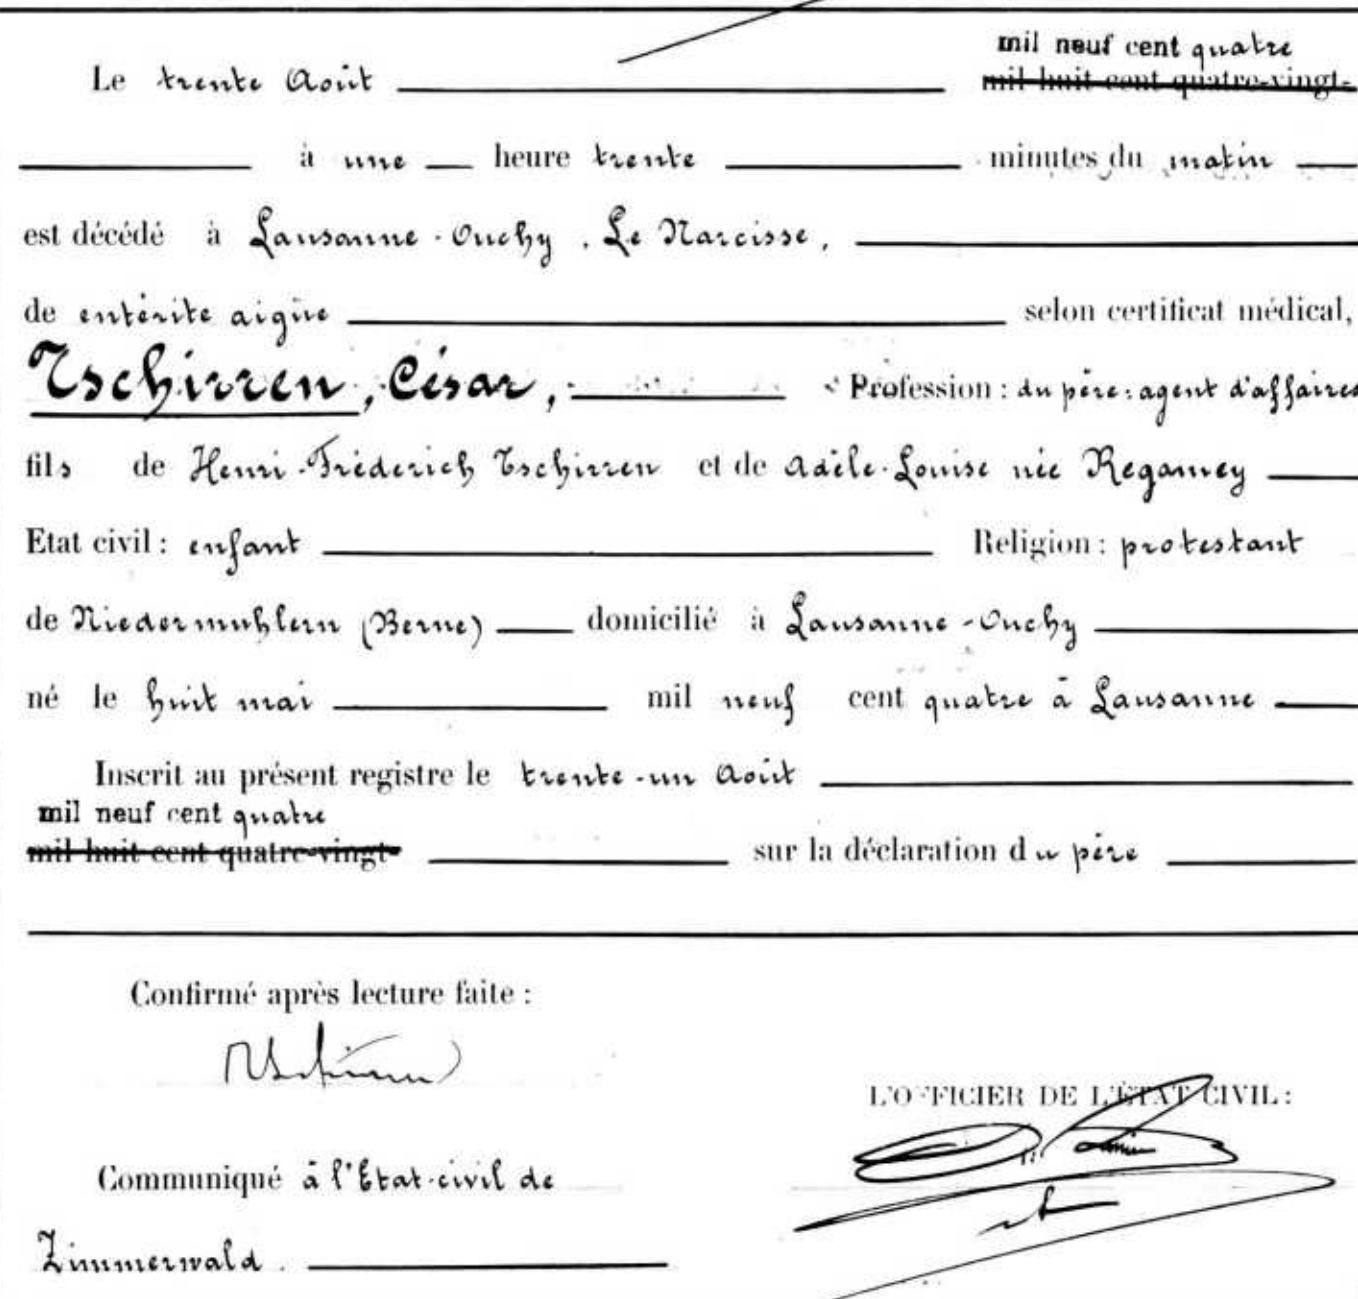 mil neuf cent quatre
Le trente Août mil huit cent quatre-vingt-
à une heure trente minutes du matin
est décédé à Lausanne-Ouchy, Le Narcisse,
de entérite aigüe selon certificat médical,
Tschirren, César, Profession : du père: agent d'affaires
fils de Henri-Fréderich Tschirren et de Adèle-Louise née Regamey
Etat civil : enfant Religion : protestant
de Niedermuhlern (Berne) domicilié à Lausanne-Ouchy
né le huit mai mil neuf cent quatre à Lausanne
Inscrit au présent registre le trente-un Août
mil neuf cent quatre
mil huit cent quatre-vingt- sur la déclaration du père
Confirmé après lecture faite :
Tschirren
L'OFFICIER DE L'ÉTAT CIVIL :
Communiqué à l'Etat-civil de
Zimmerwald.